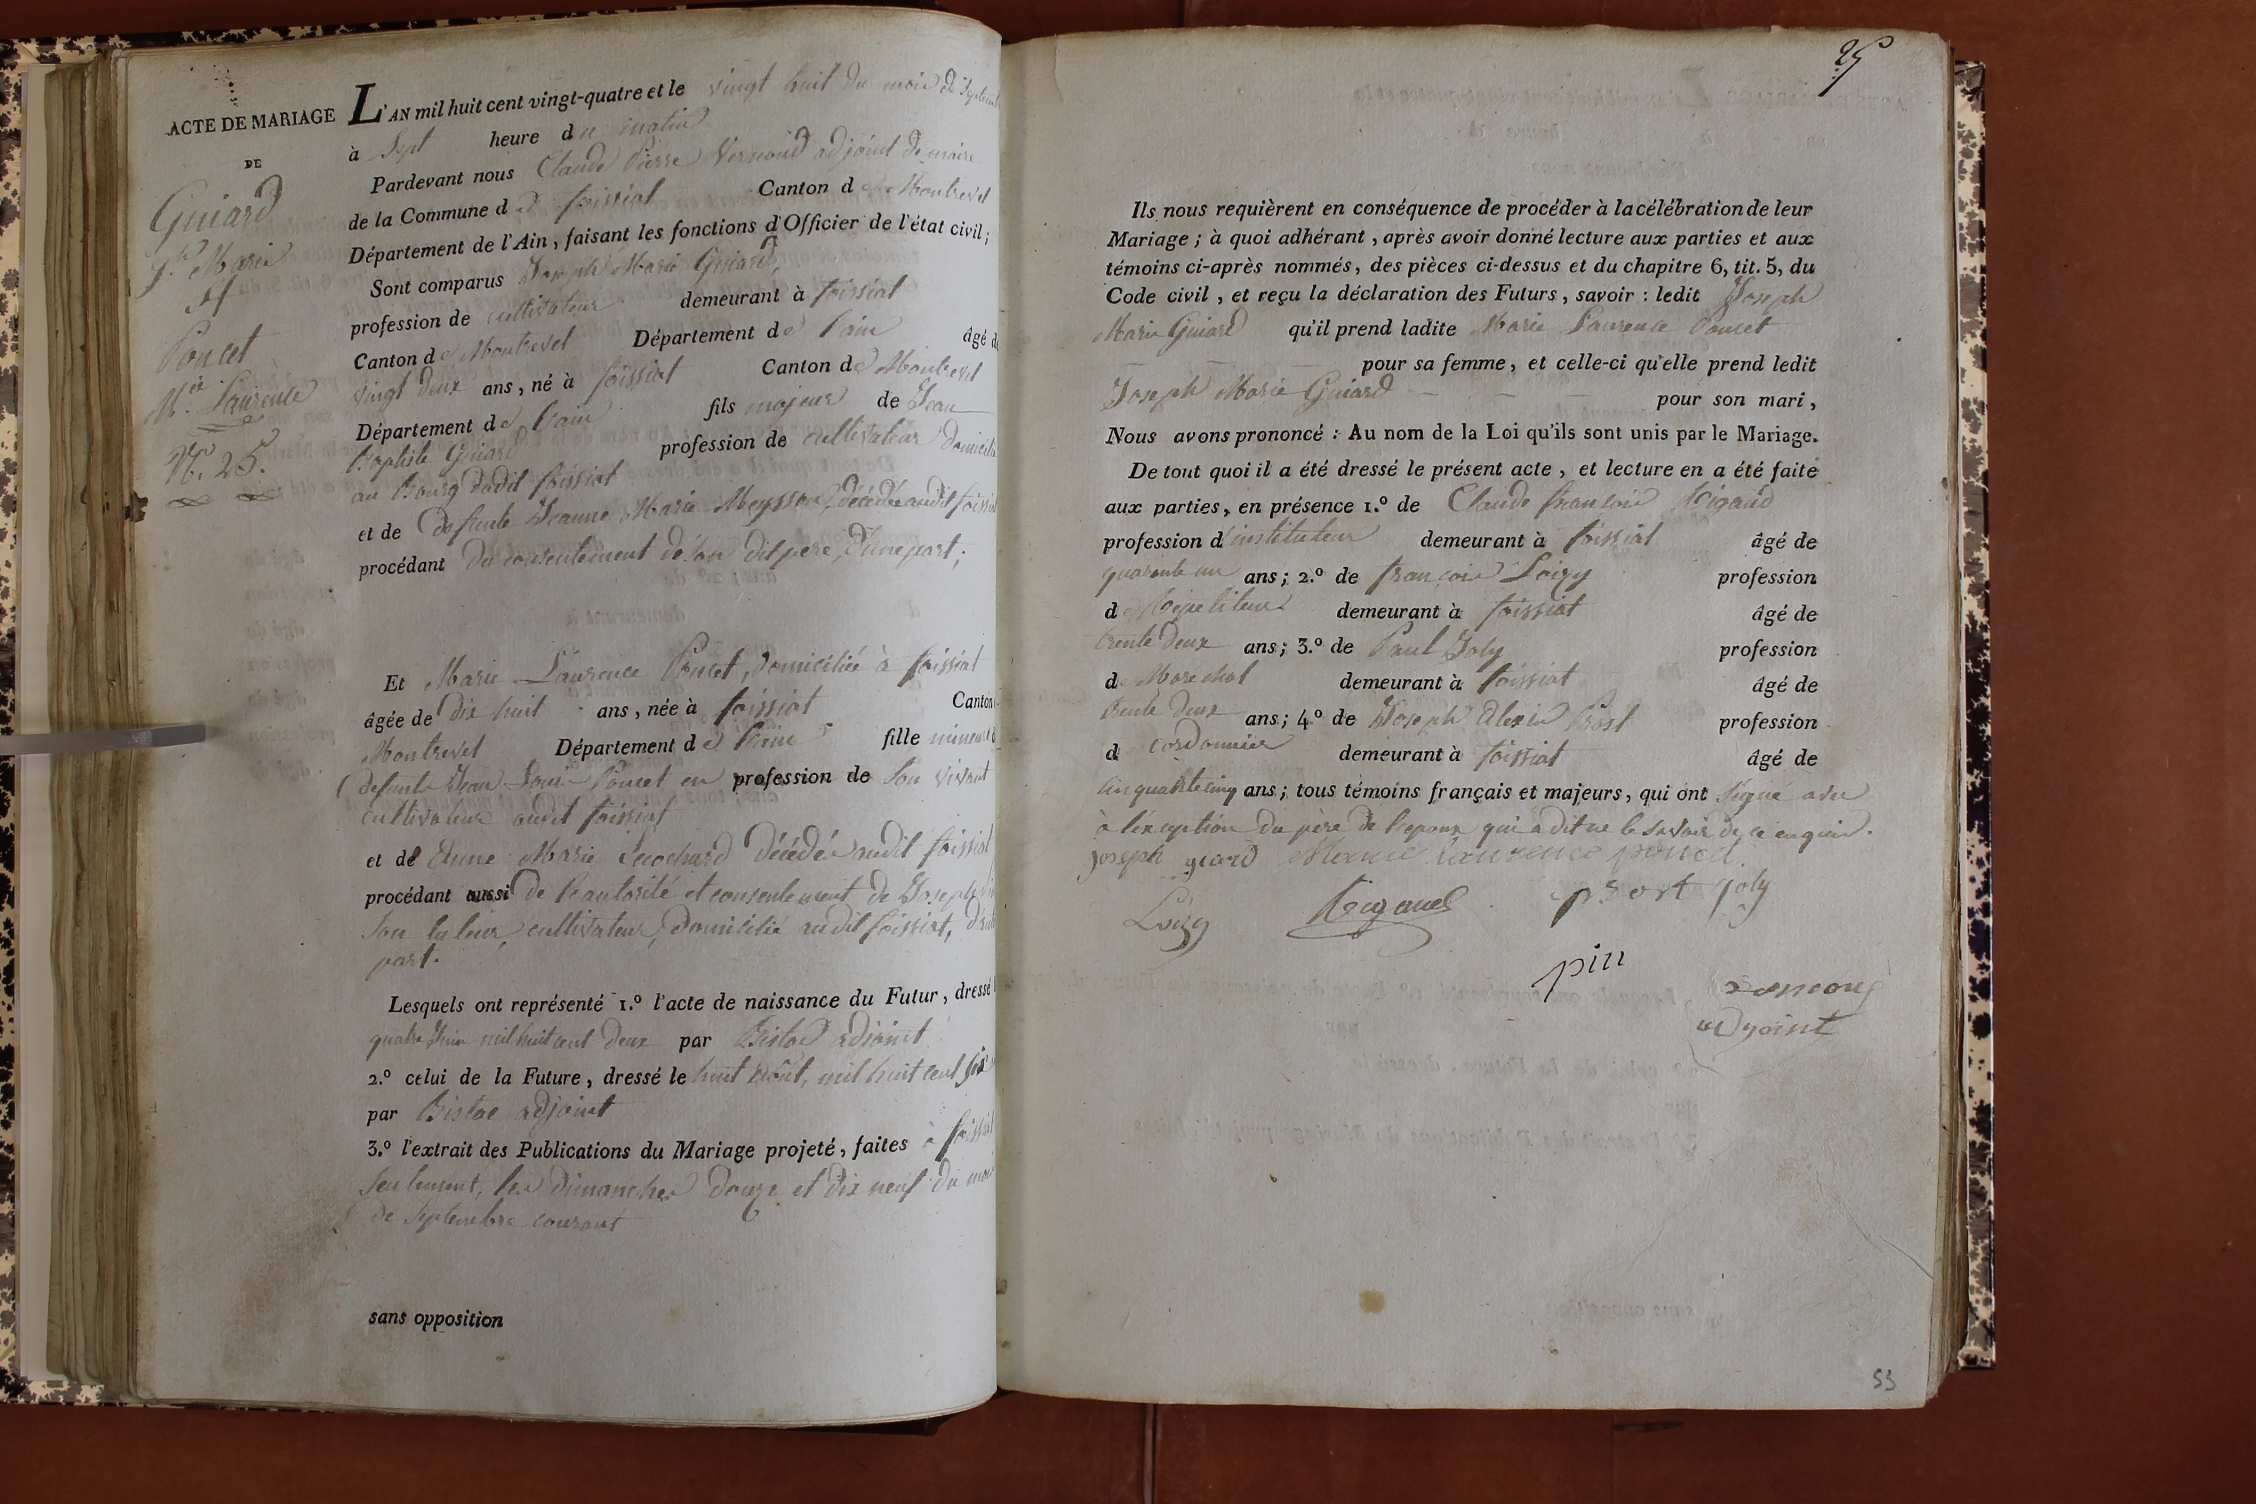 ACTE DE MARIAGE
DE
Guiard
J.h Marie
&
Poncet
M.ie Laurence
N.o 25.
L'AN mil huit cent vingt-quatre et le vingt huit du mois de Septemb
à Sept heure du matin
Pardevant nous Claude Pierre adjoint de maire
de la Commune de foissiat Canton de Montrevel
Département de l'Ain, faisant les fonctions d'Officier de l'état civil;
Sont comparus Joseph Marie Guiard,
profession de cultivateur demeurant à foissiat
Canton de Montrevel Département de l'ain âgé de
vingt deux ans, né à foissiat Canton de Montrevel
Département de l'ain fils majeur de Jean
Baptiste Guiard profession de cultivateur domicilié
au Bourg dudit foissiat
et de defunte Jeanne Marie Meysson, décédée audit foissiat
procédant du consentement de son dit pere, d'une part;
Et Marie Laurence Poncet, domiciliée à foissiat
âgée de dix huit ans, née à foissiat Canton
Montrevel Département de l'ain fille mineure d
defunts Jean Louis Poncet en profession de son vivant
cultivateur audit foissiat
et de Anne Marie décédée audit foissiat
procédant aussi de l'autorité et consentement de Joseph
son tuteur, cultivateur, domicilié audit foissiat, d'autre
part.
Lesquels ont représenté 1.º l'acte de naissance du Futur, dressé l
quatre Juin mil huit cent deux par adjoint
2.º celui de la Future, dressé le huit août, mil huit cent six
par adjoint
3.º l'extrait des Publications du Mariage projeté, faites à foissiat
seulement, les dimanches douze et dix neuf du mois
de Septembre courant
sans opposition
25
Ils nous requièrent en conséquence de procéder à la célébration de leur
Mariage; à quoi adhérant, après avoir donné lecture aux parties et aux
témoins ci-après nommés, des pièces ci-dessus et du chapitre 6, tit. 5, du
Code civil, et reçu la déclaration des Futurs, savoir: ledit Joseph
Marie Guiard qu'il prend ladite Marie Laurence Poncet
pour sa femme, et celle-ci qu'elle prend ledit
Joseph Marie Guiard pour son mari,
Nous avons prononcé: Au nom de la Loi qu'ils sont unis par le Mariage.
De tout quoi il a été dressé le présent acte, et lecture en a été faite
aux parties, en présence 1.º de Claude françois Rigaud
profession d'instituteur demeurant à foissiat âgé de
quarante un ans; 2.º de françois Loizy profession
de Répétiteur demeurant à foissiat âgé de
trente deux ans; 3.º de Paul Joly profession
de Marechal demeurant à foissiat âgé de
trente deux ans; 4.º de Joseph Alexis Prost profession
de cordonnier demeurant à foissiat âgé de
cinquante cinq ans; tous témoins français et majeurs, qui ont signé avec
à l'exception du père de l'epoux qui a dit ne le savoir de ce enquis.
joseph giard Marie laurence poncet
Loizy Rigaud prost joly
pin
adjoint
53